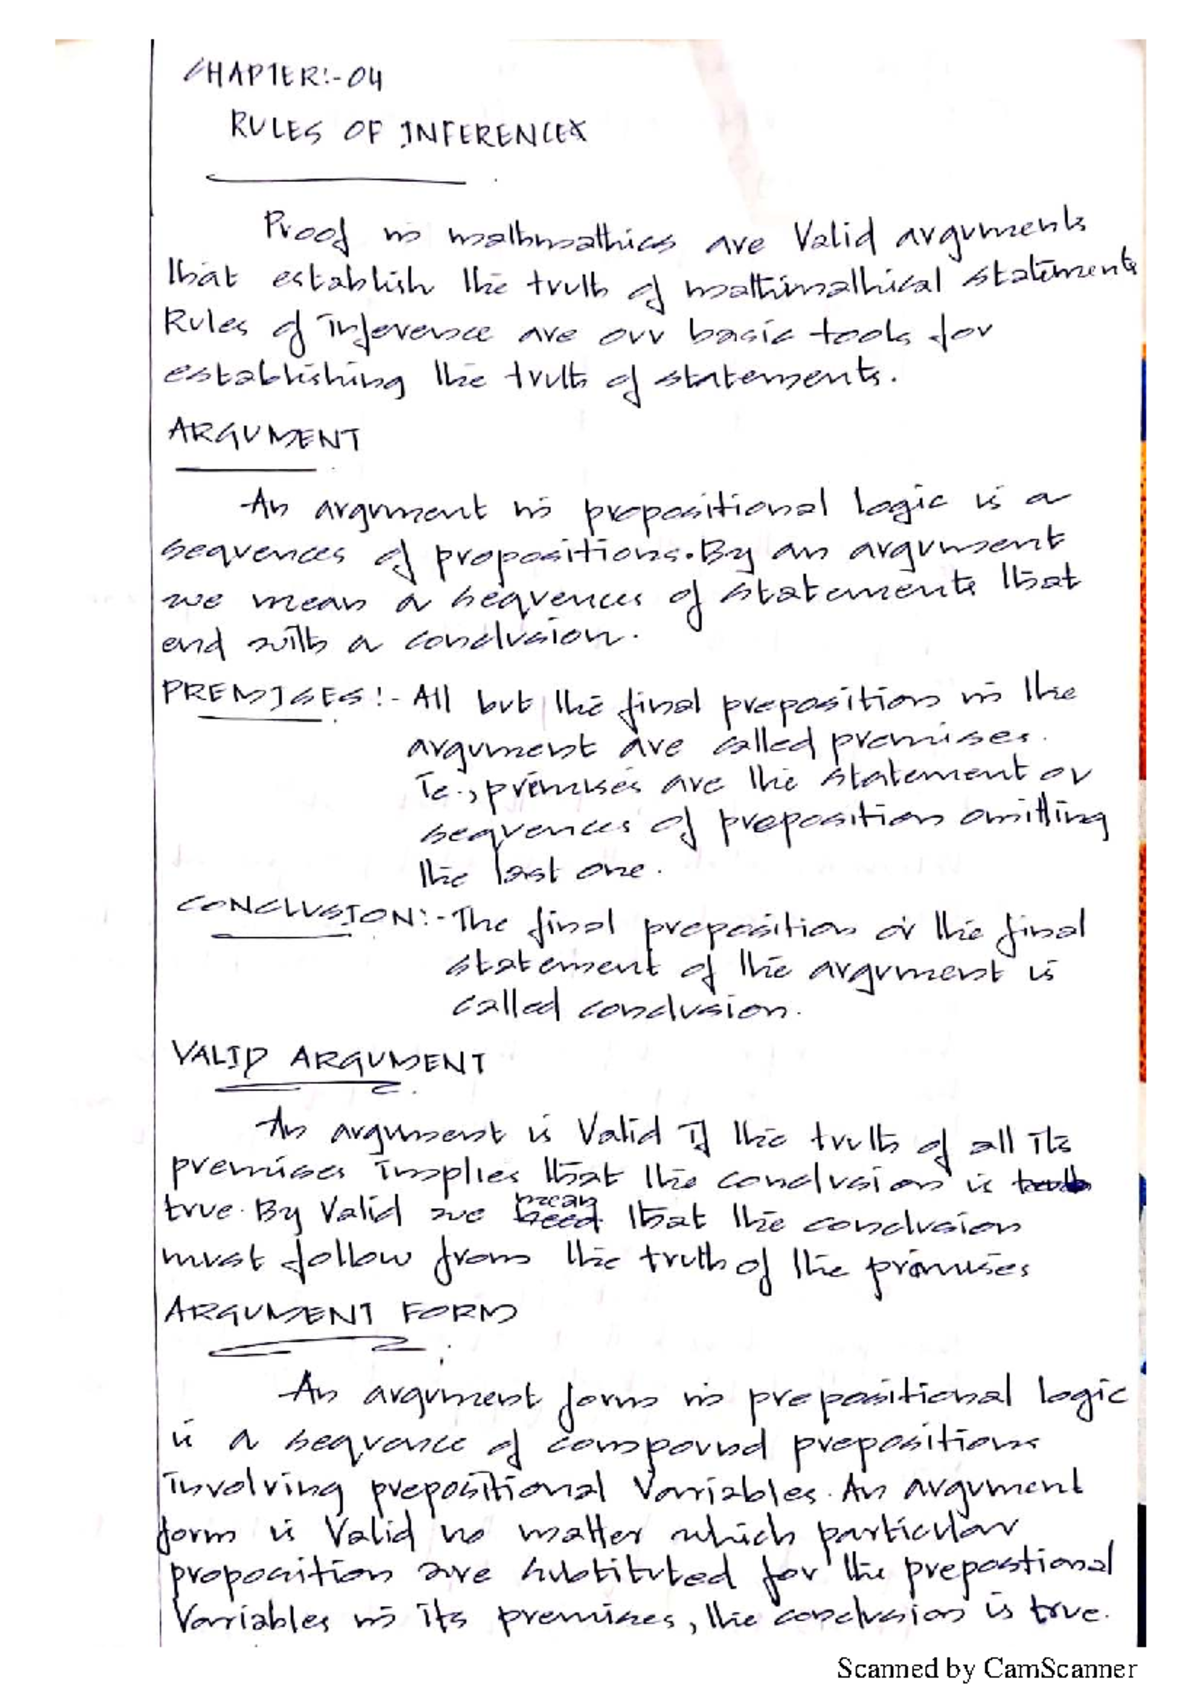 CHAPTER:-04
RULES OF INFERENCE
Proof in mathmathics are Valid arguments
that establish the truth of mathimathical statements
Rules of inference are our basic tools for
establishing the truth of statements.
ARGUMENT
An argument in propositional logic is a
sequences of propositions. By an argument
we mean a sequences of statements that
end with a conclusion.
PREMISES:- All but the final preposition in the
argument are called premises.
Ie., premises are the statement or
sequences of preposition omitting
the last one.
CONCLUSION:- The final preposition or the final
statement of the argument is
called conclusion.
VALID ARGUMENT
An argument is Valid if the truth of all its
premises implies that the conclusion is
true. By Valid we mean that the conclusion
must follow from the truth of the primises
ARGUMENT FORM
An argument form in prepositional logic
is a sequence of compound prepositions
involving prepositional Variables. An argument
form is Valid no matter which particular
proposition are substituted for the prepostional
Variables in its premises, the conclusion is true.
Scanned by CamScanner